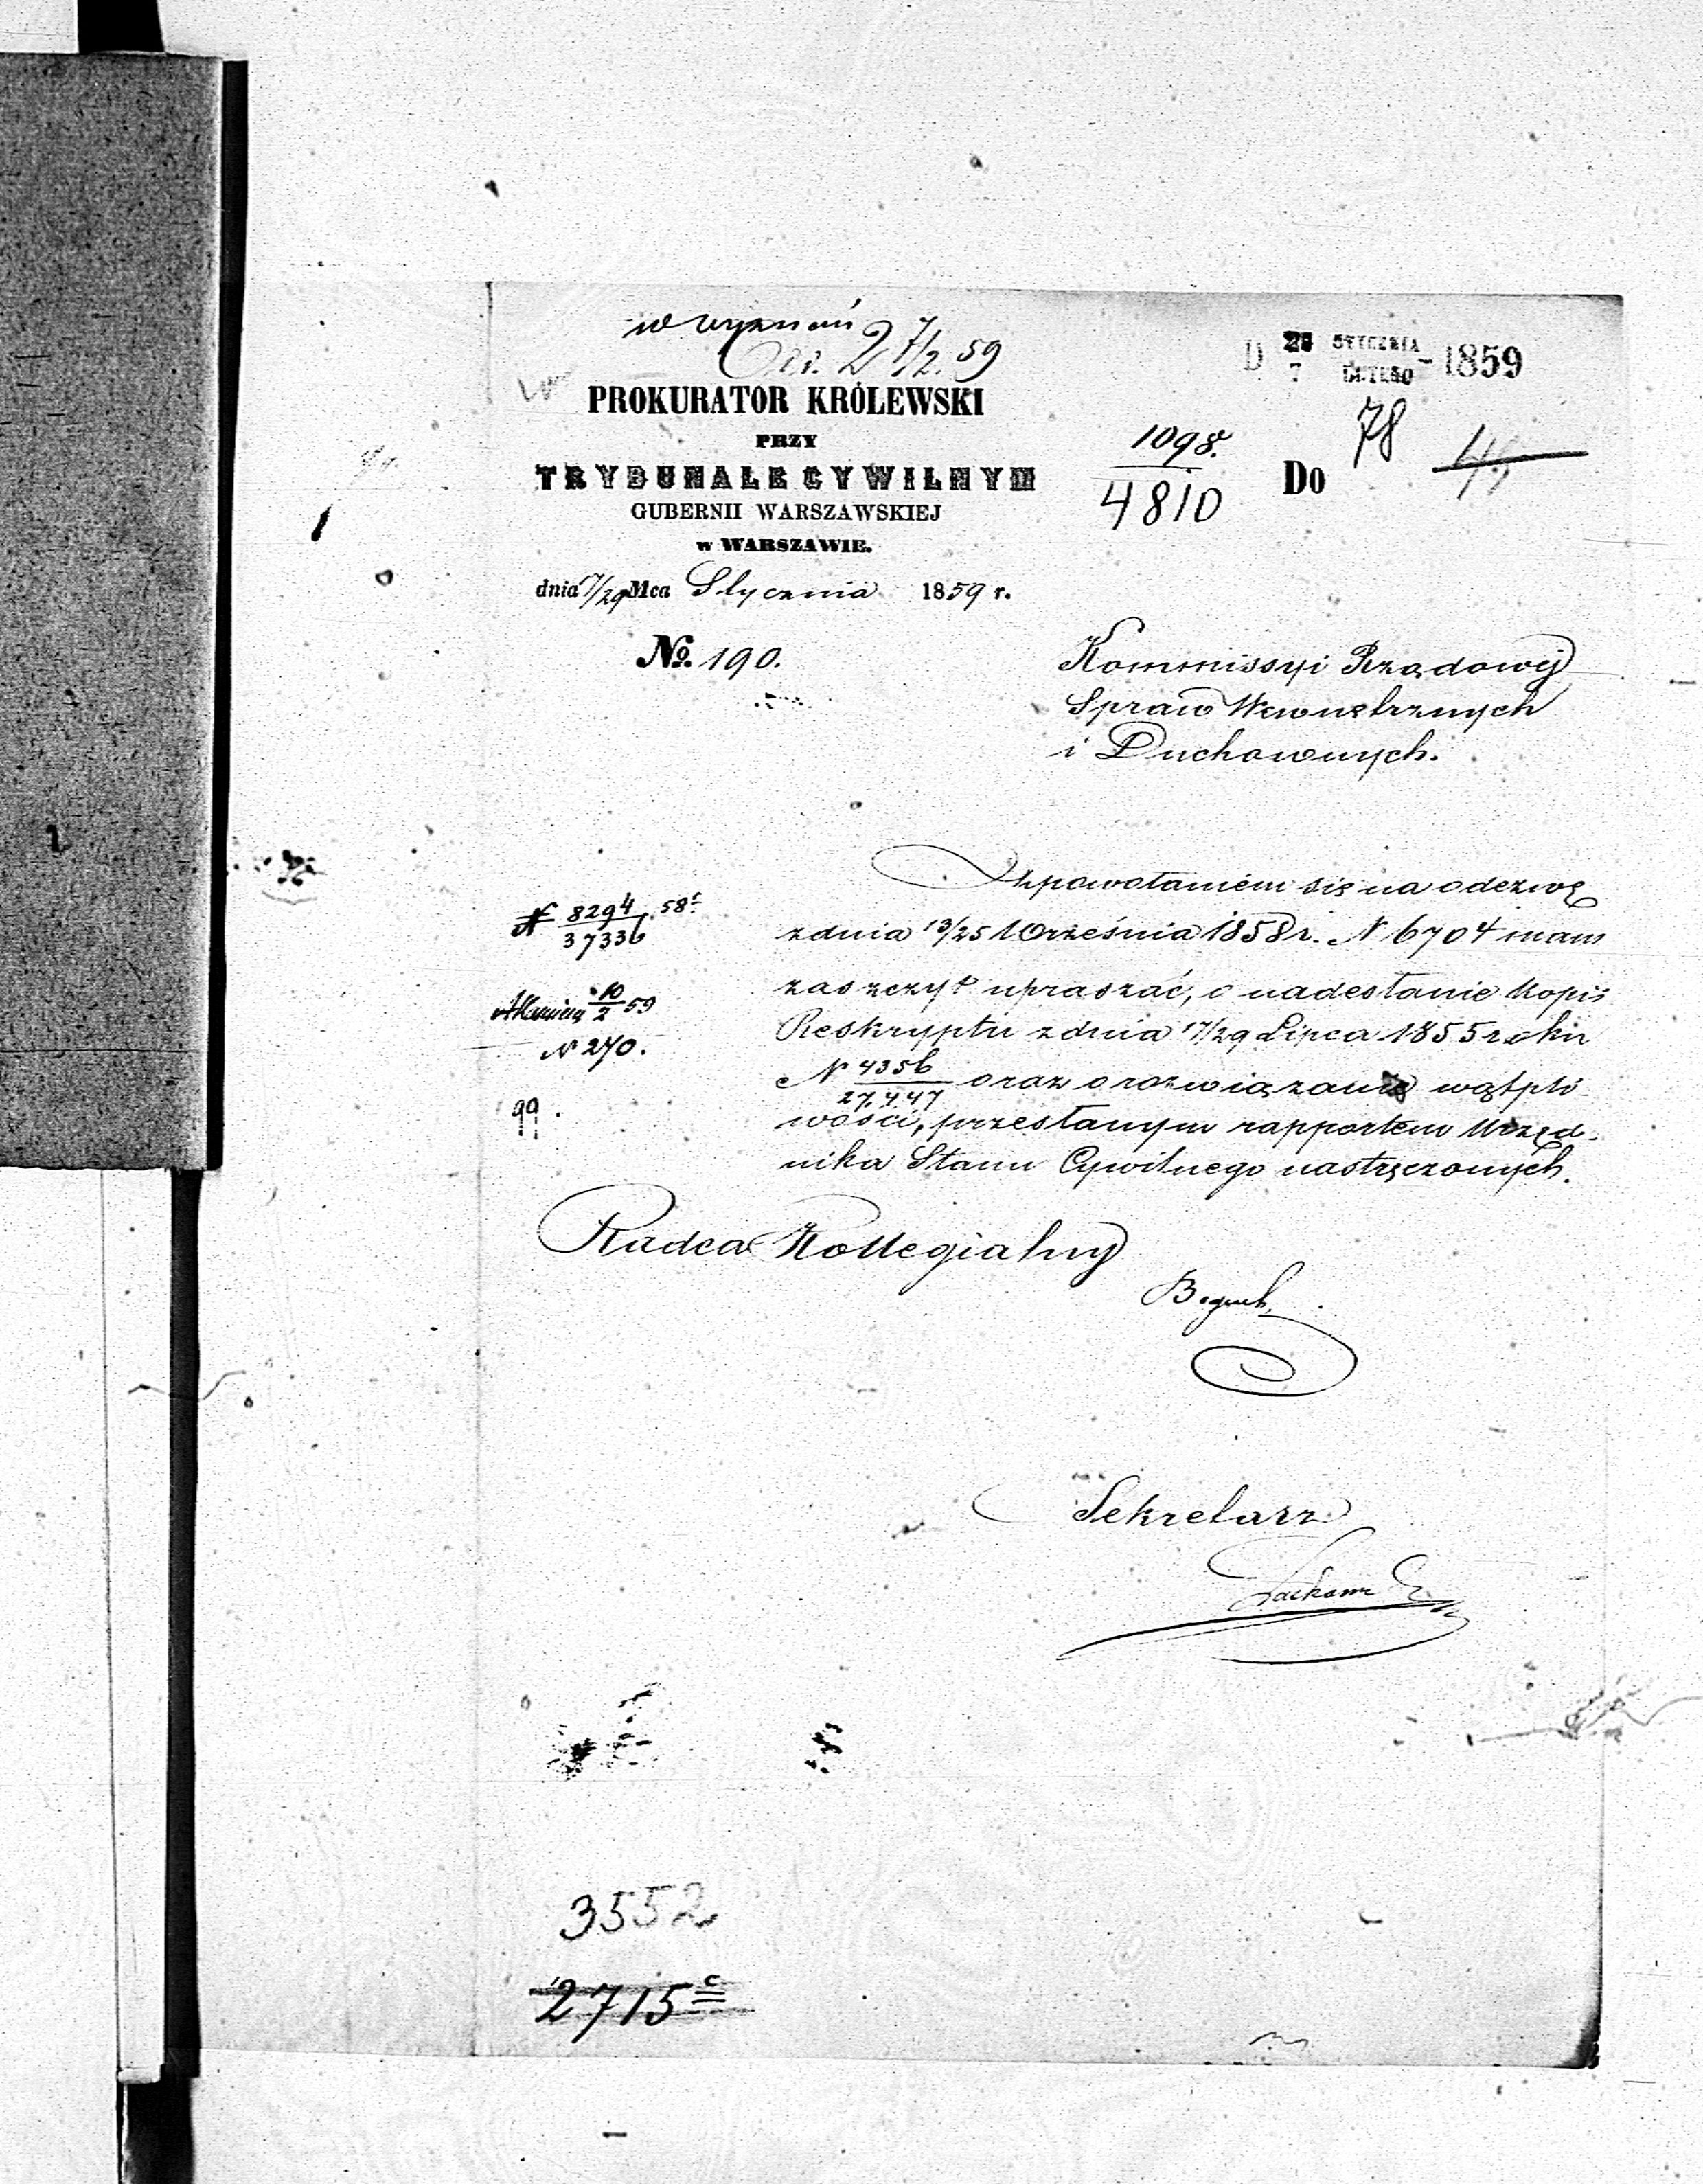 w wyznań
2 7/2. 59
D 26 STYCZNIA
7 LUTEGO - 1859
PROKURATOR KRÓLEWSKI
PRZY
TRYBUNALE CYWILNYM
GUBERNII WARSZAWSKIEJ
w WARSZAWIE.
dnia 17/29 Mca Stycznia 1859 r.
No. 190.
1098.
4810
Do
78
Kommissyi Rządowej
Spraw Wewnętrznych
i Duchownych.
N 8294 58r
37336
10/2 59
N 270.
99.
Z powołaniem się na odezwę
z dnia 13/25 Września 1858 r. N 6704 mam
zaszczyt upraszać, o nadesłanie kopii
Reskryptu z dnia 17/29 Lipca 1855 roku
N 4356
27,447 oraz o rozwiązanie wątpli
wości, przesłanym rapportem Urzęd-
nika Stanu Cywilnego nastręczonych.
Radca Kollegialny
Sekretarz
3552
2715c